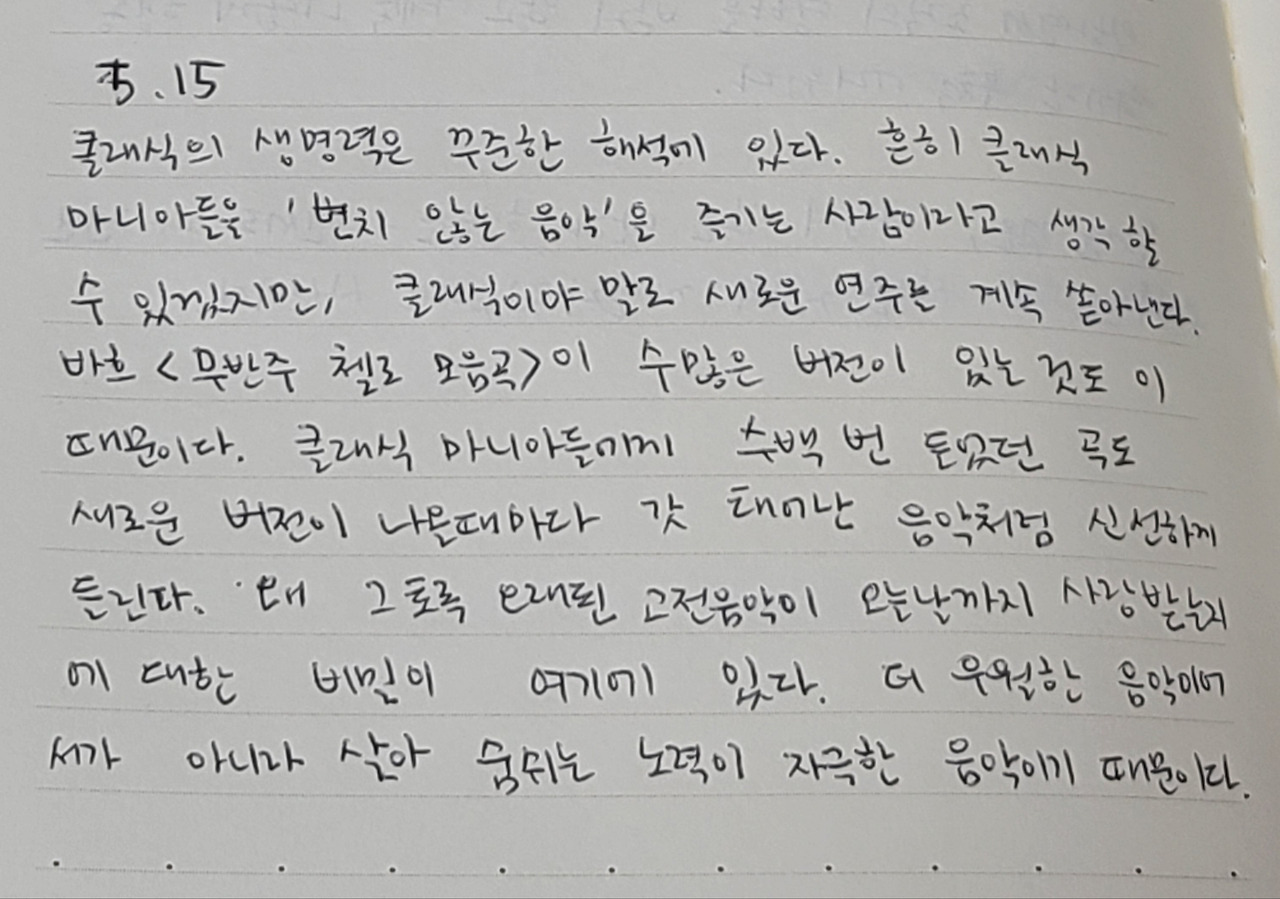 5.15
클래식의 생명력은 꾸준한 해석에 있다. 흔히 클래식
마니아들을 '변치 않는 음악'을 즐기는 사람이라고 생각할
수 있겠지만, 클래식이야 말로 새로운 연주를 계속 쏟아낸다.
바흐 <무반주 첼로 모음곡>이 수많은 버전이 있는 것도 이
때문이다. 클래식 마니아들에게 수백 번 들었던 곡도
새로운 버전이 나올때마다 갓 태어난 음악처럼 신선하게
들린다. 왜 그토록 오래된 고전음악이 오늘날까지 사랑받는지
에 대한 비밀이 여기에 있다. 더 우월한 음악이어
서가 아니라 살아 숨쉬는 노력이 자극한 음악이기 때문이다.